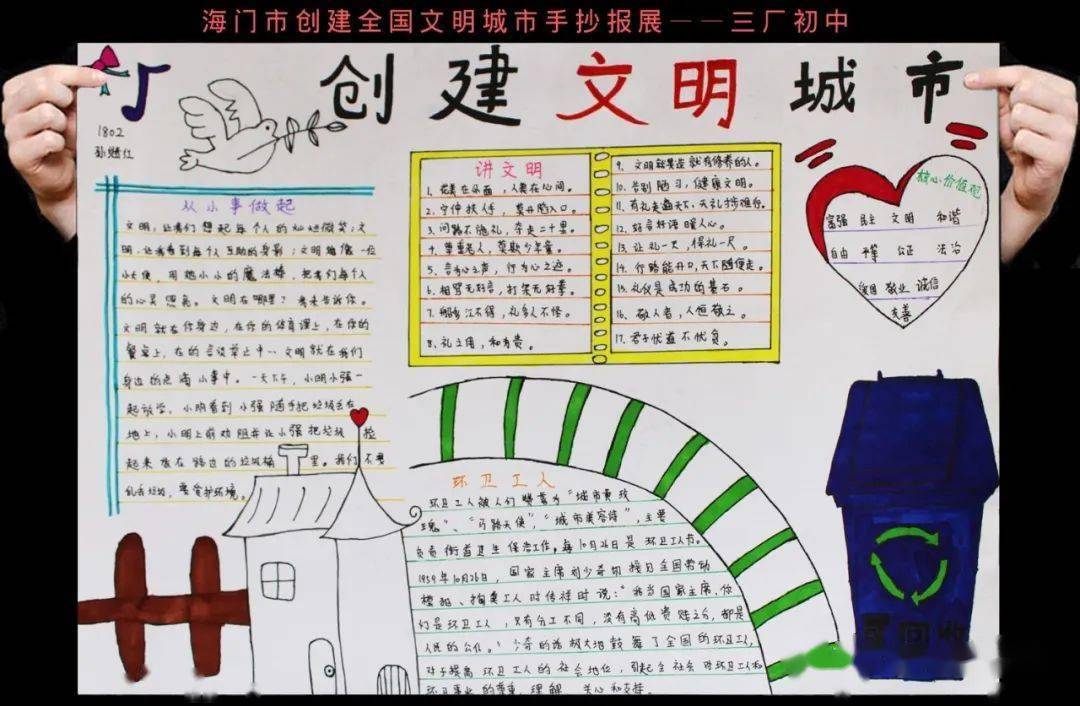 海门市创建全国文明城市手抄报展——三厂初中
创建文明城市
1802
从小事做起
文明,让我们想起每个人的灿烂微笑;文
明,让我看到每个互助的身影;文明就像一位
小天使,用她小小的魔法棒,把我们每个人
的心灵照亮。文明在哪里?我来告诉你。
文明就在你身边,在你的体育课上,在你的
餐桌上,在的言谈举止中…文明就在我们
身边的点滴小事中。一天下午,小明小强一
起放学,小明看到小强随手把垃圾丢在
地上,小明上前劝阻并让小强把垃圾捡
起来放在路边的垃圾桶里。我们不要
乱丢垃圾,要爱护环境。
讲文明
1、花美在外面,人美在心间。
2、宁伸扶人手,莫开陷人口。
3、问路不施礼,多走二十里。
4、尊重老人,莫欺少年童。
5、言为心之声,行为心之迹。
6、相骂无好言,打架无好拳。
7、船多江不得,礼多人不怪。
8、礼之用,和为贵。
9、文明就是造就有修养的人。
10、告别陋习,健康文明。
11、有礼走遍天下,无礼寸步难行。
12、好言好语暖人心。
13、让礼一尺,得礼一尺。
14、行路能开口,天下随便走。
15、礼仪是成功的基石。
16、敬人者,人恒敬之。
17、君子忧道不忧贫。
核心价值观
富强 民主 文明 和谐
自由 平等 公正 法治
爱国 敬业 诚信
友善
环卫工人
环卫工人被人们誉为“城市黄玫
瑰”、“马路天使”,“城市美容师”,主要
负责街道卫生保洁工作。每10月26日是环卫工人节。
1959年10月26日,国家主席刘少奇接见全国劳动
模范、掏粪工人时传祥时说:“我当国家主席,你
们是环卫工人,只有分工不同,没有高低贵贱之分,都是
人民的公仆。”少奇的话极大地鼓舞了全国的环卫工人,
对于提高环卫工人的社会地位,引起全社会对环卫工人和
环卫事业的尊重、理解、关心和支持。
可回收